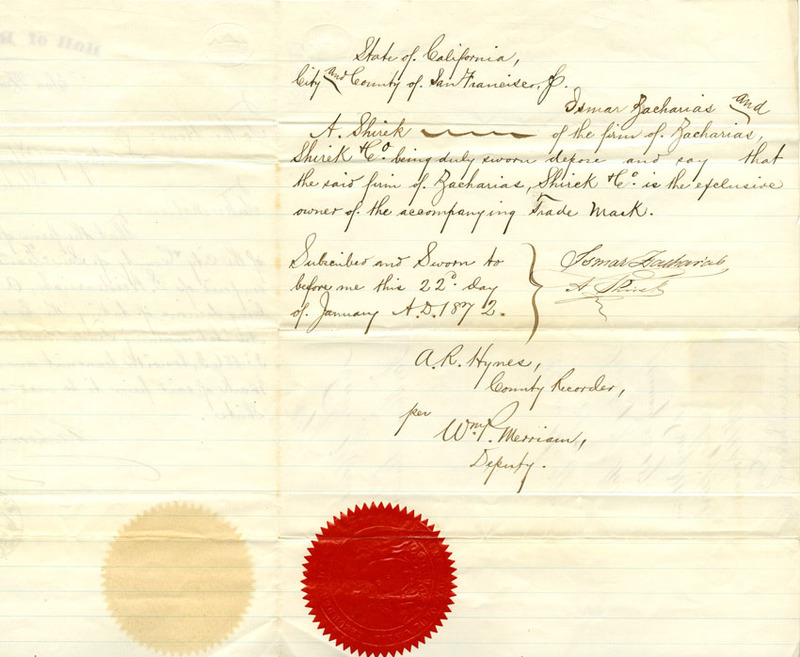 State of California,
City and County of San Francisco,
Ismar Zacharias and
A. Shirek of the firm of Zacharias,
Shirek & Co being duly sworn depose and say that
the said firm of Zacharias, Shirek & Co. is the exclusive
owner of the accompanying Trade Mark.
Subscribed and Sworn to
before me this 22d. day
of January A.D. 1872.
Ismar Zacharias
A. Shirek
A. R. Hynes,
County Recorder,
per
Wm P. Merriam,
Deputy.